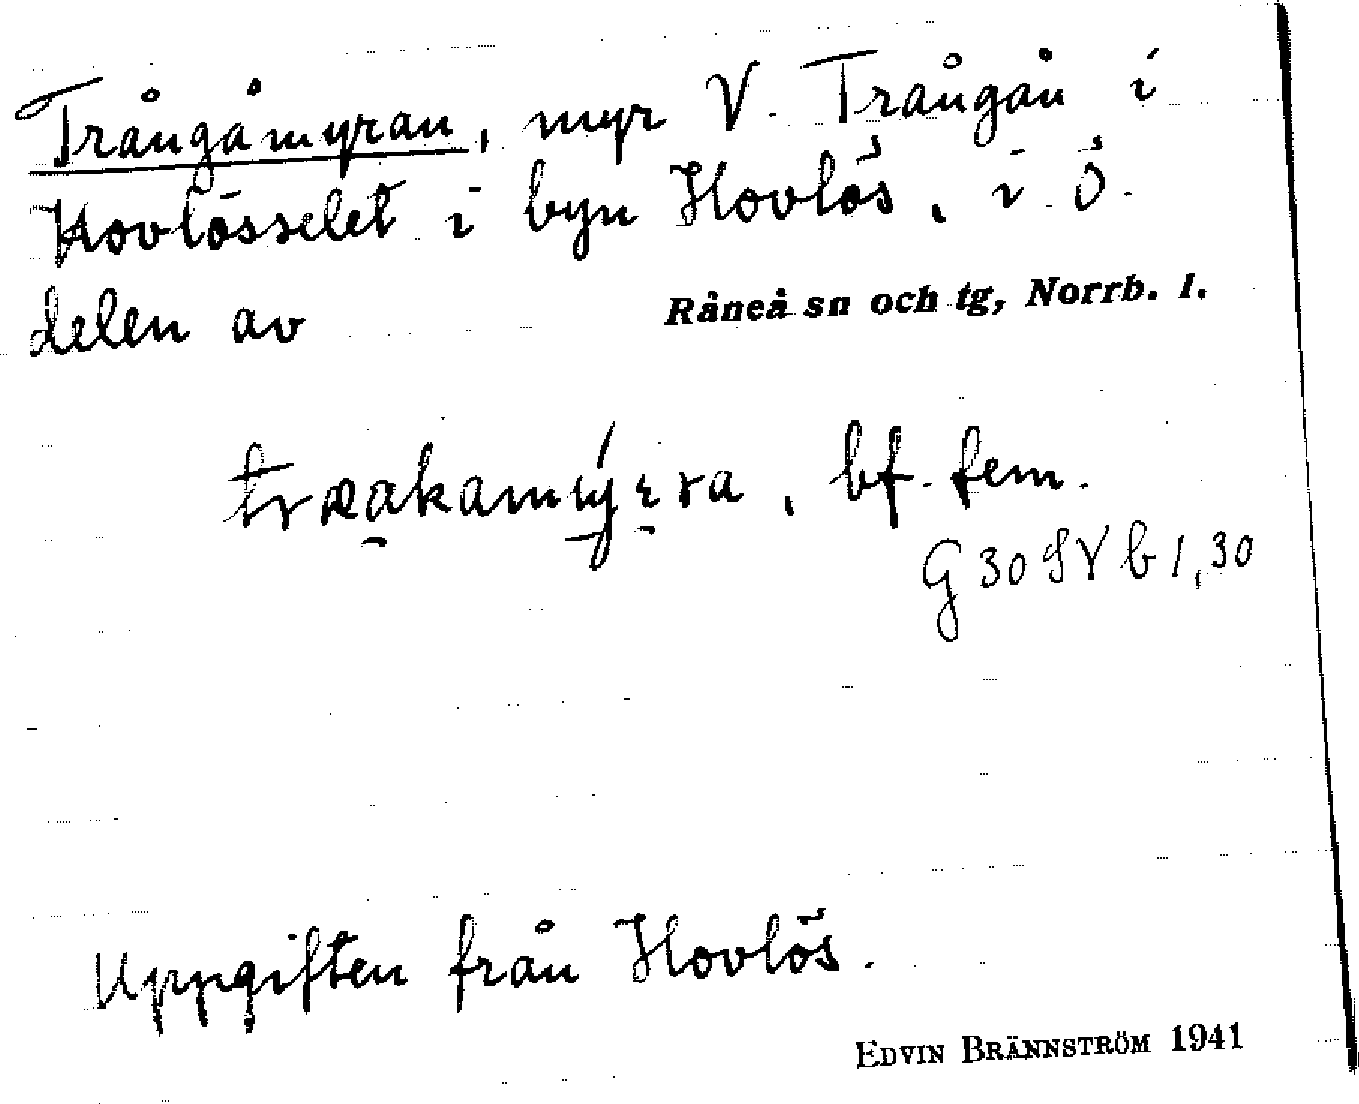 Trångåmyran, myr V. Trångån i
Hovlösselet i byn Hovlös, i Ö.
delen av Råneå sn och tg, Norrb. l.
bf. fem.
G 30 SV b 1, 30
Uppgiften från Hovlös.
EDVIN BRÄNNSTRÖM 1941